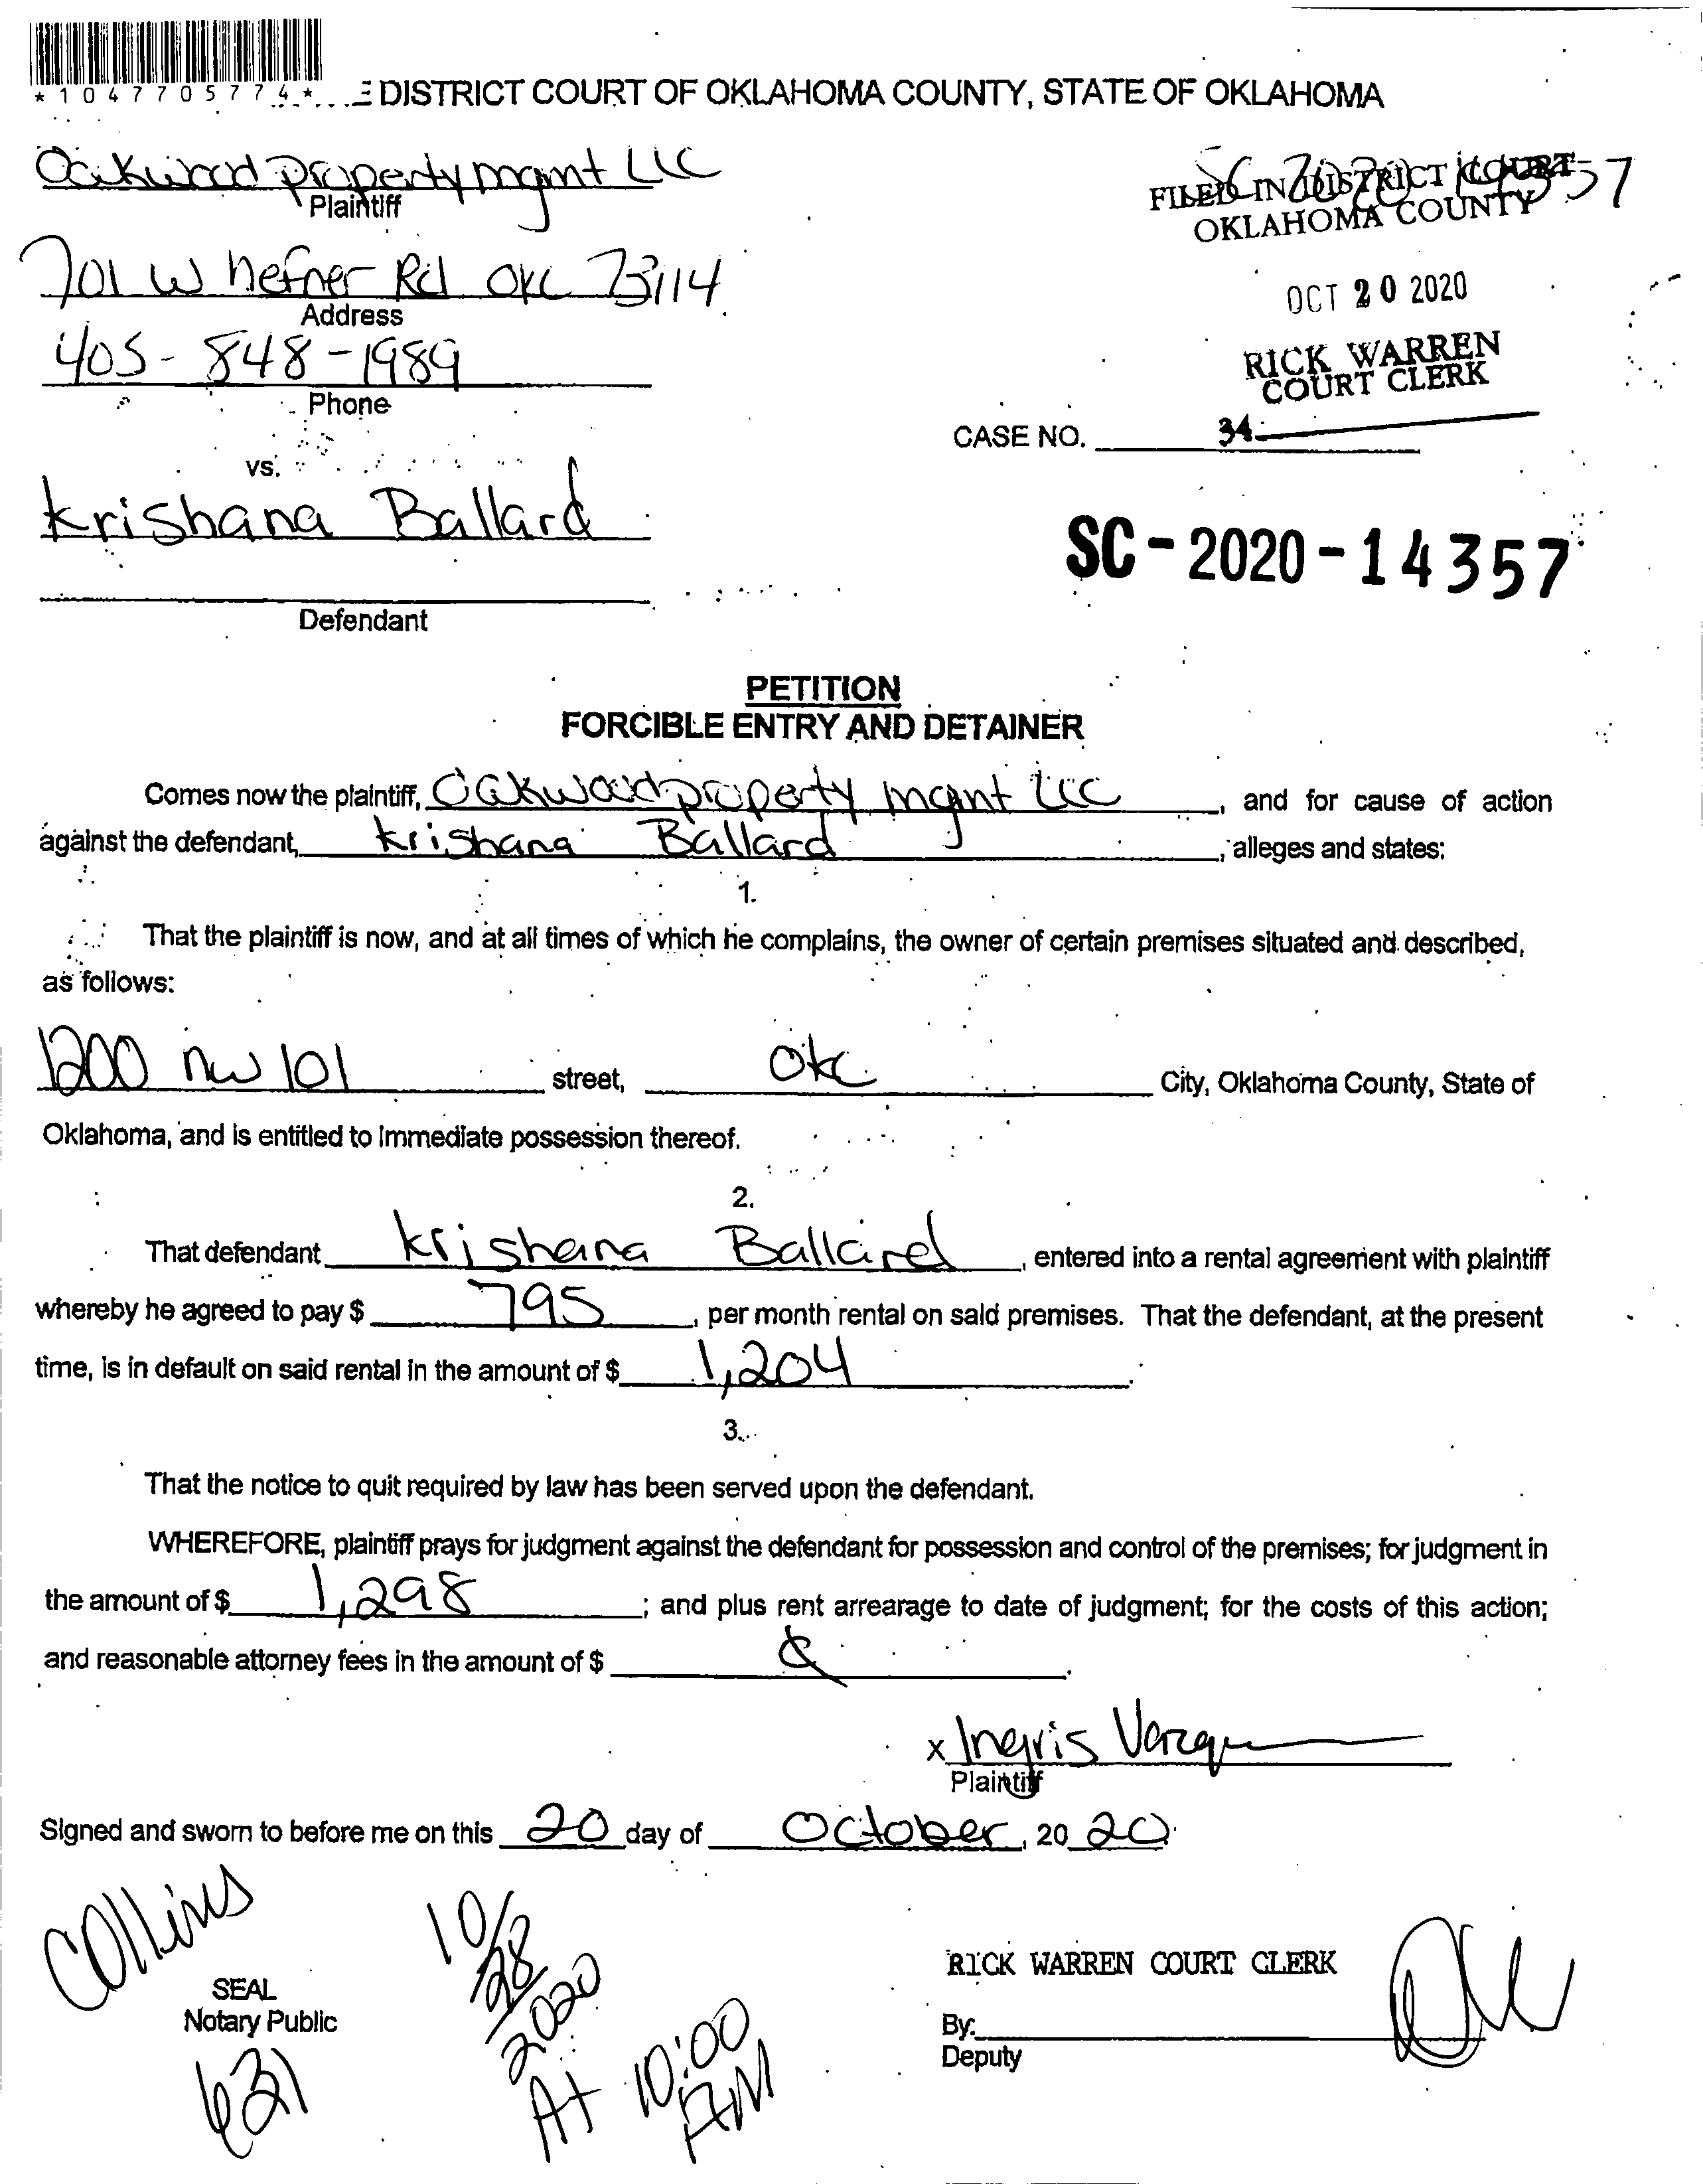 *1047705774*
E DISTRICT COURT OF OKLAHOMA COUNTY, STATE OF OKLAHOMA
Oakwood property mgmt LLC
Plaintiff
SC 2020 14357
FILED IN DISTRICT COURT
OKLAHOMA COUNTY
701 W hefner Rd OKC 73114
Address
OCT 20 2020
405-848-1989
Phone
RICK WARREN
COURT CLERK
CASE NO. 34
vs.
Krishana Ballard
SC-2020-14357
Defendant
PETITION
FORCIBLE ENTRY AND DETAINER
Comes now the plaintiff, Oakwood property mgmt LLC, and for cause of action
against the defendant, Krishana Ballard, alleges and states:
1.
That the plaintiff is now, and at all times of which he complains, the owner of certain premises situated and described,
as follows:
1200 nw 101 street, OKC City, Oklahoma County, State of
Oklahoma, and is entitled to immediate possession thereof.
2.
That defendant Krishana Ballard, entered into a rental agreement with plaintiff
whereby he agreed to pay $ 795, per month rental on said premises. That the defendant, at the present
time, is in default on said rental in the amount of $ 1,204.
3.
That the notice to quit required by law has been served upon the defendant.
WHEREFORE, plaintiff prays for judgment against the defendant for possession and control of the premises; for judgment in
the amount of $ 1,298; and plus rent arrearage to date of judgment; for the costs of this action;
and reasonable attorney fees in the amount of $
x Ingris
Plaintiff
Signed and sworn to before me on this 20 day of October, 2020
Collins
10/28/2020
At 10:00
AM
SEAL
Notary Public
631
RICK WARREN COURT CLERK
By:
Deputy